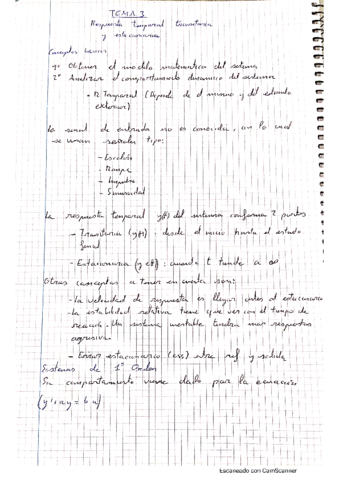 TEMA 3
Respuesta temporal transitoria
y estacionaria
Conceptos basicos
1º Obtener el modelo matematico del sistema
2º Analizar el comportamiento dinamico del sistema
• R Temporal (Depende de el mismo y del estimulo
exterior)
La señal de entrada no es conocida, en lo cual
se usan señales tipo:
- Escalon
- Rampa
- Impulso
- Sinusoidal
La respuesta temporal y(t) del sistema conforma 2 partes
- Transitoria (y(t)): desde el inicio hasta el estado
final
- Estacionaria (y(t)): cuando t tiende a ∞
Otros conceptos a tener en cuenta son:
- La velocidad de respuesta es llegar antes al estacionario
- La estabilidad relativa tiene que ver con el tiempo de
reacción. Un sistema inestable tendra mas respuestas
agresivas.
- Error estacionario (ess) entre ref y salida
Sistemas de 1º Orden
Su comportamiento viene dado por la ecuación
(y' + ay = b u)
Escaneado con CamScanner